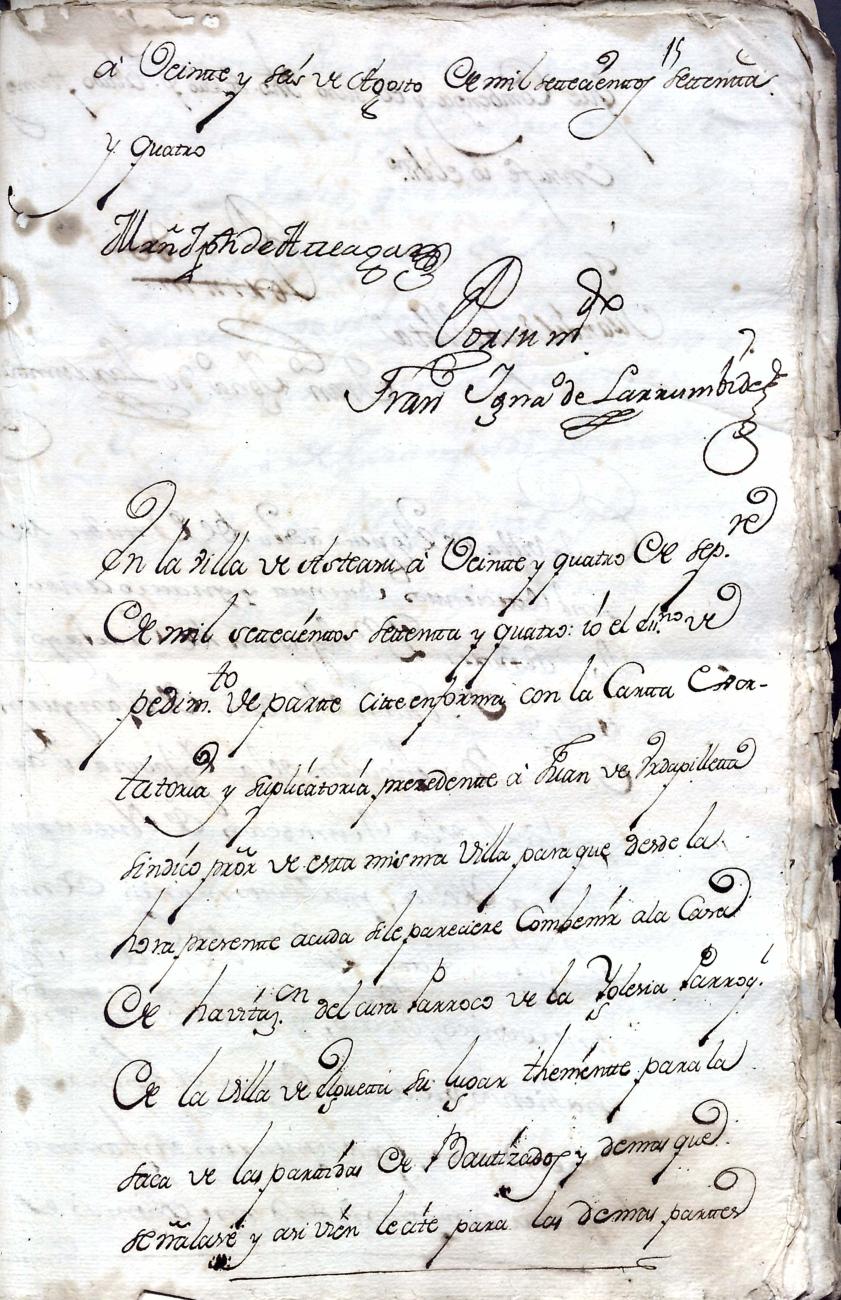 15
à Veintte y seis de Agosto de mil settecienttos settentta
y quatro
de Atteaga
Por su mdo
Franco Ignao de Larrumbide
En la villa de Asteasu à Veintte y quatro de sepre
de mil settecienttos settentta y quatro: io el essno de
pedimto de partte citte en forma con la Cartta Exor-
tatoria y suplicatoria prezedentte à Juan de Urdapilletta
sindico pror de estta misma villa para que desde la
hora presentte acuda si le pareciere Combenir a la Casa
de havitazon del cura Parroco de la Yglesia Parroql
de la villa de Elguetta su lugar thenientte para la
saca de las parttidas de Bautizados y demas que
señalase y asi vien le citte para las demas parttes